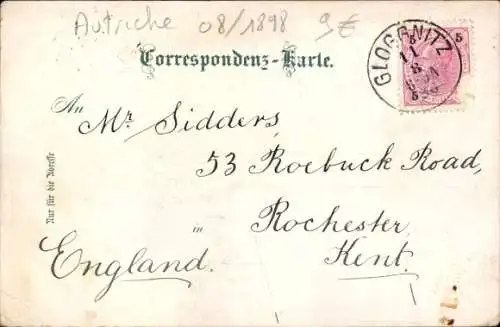 Autriche 08/1898 9€
Correspondenz-Karte.
GLOGGNITZ
11
8
5
5
An
Mr. Sidders,
53 Roebuck Road,
in
Rochester,
England. Kent.
Nur für die Adresse